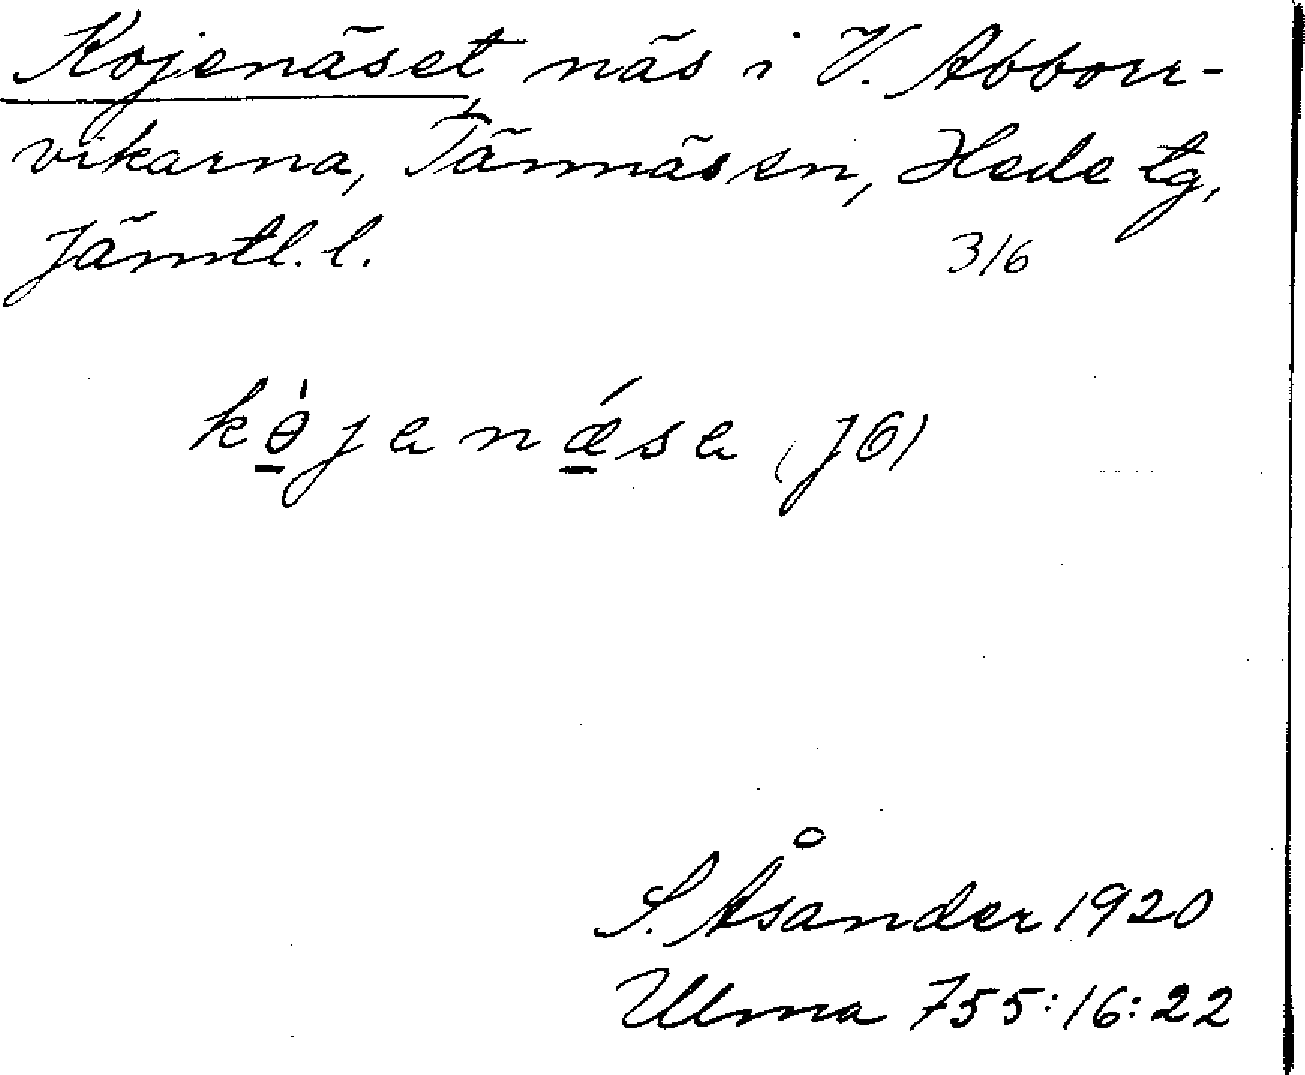 Kojenäset näs i V. Abborr-
vikarna, Tännäsen, Hede tg,
Jämtl. l. 3/6
kө̀janǽsa (JÖ)
S. Åsander 1920
Ulma 755:16:22